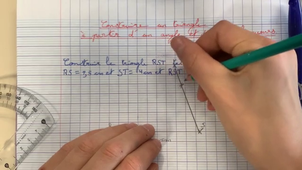 Construire un triangle
à partir d'un angle et
Construire le triangle RST
RS = 3,5 cm et ST = 4 cm et RST